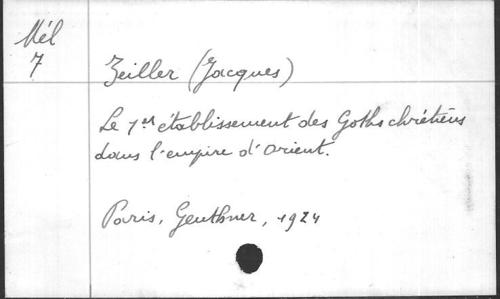 Mél
7
Zeiller (Jacques)
Le 1er établissement des Goths chrétiens
dans l'empire d'orient.
Paris, Geuthner, 1924